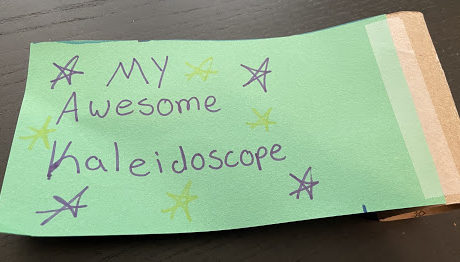 MY
Awesome
Kaleidoscope